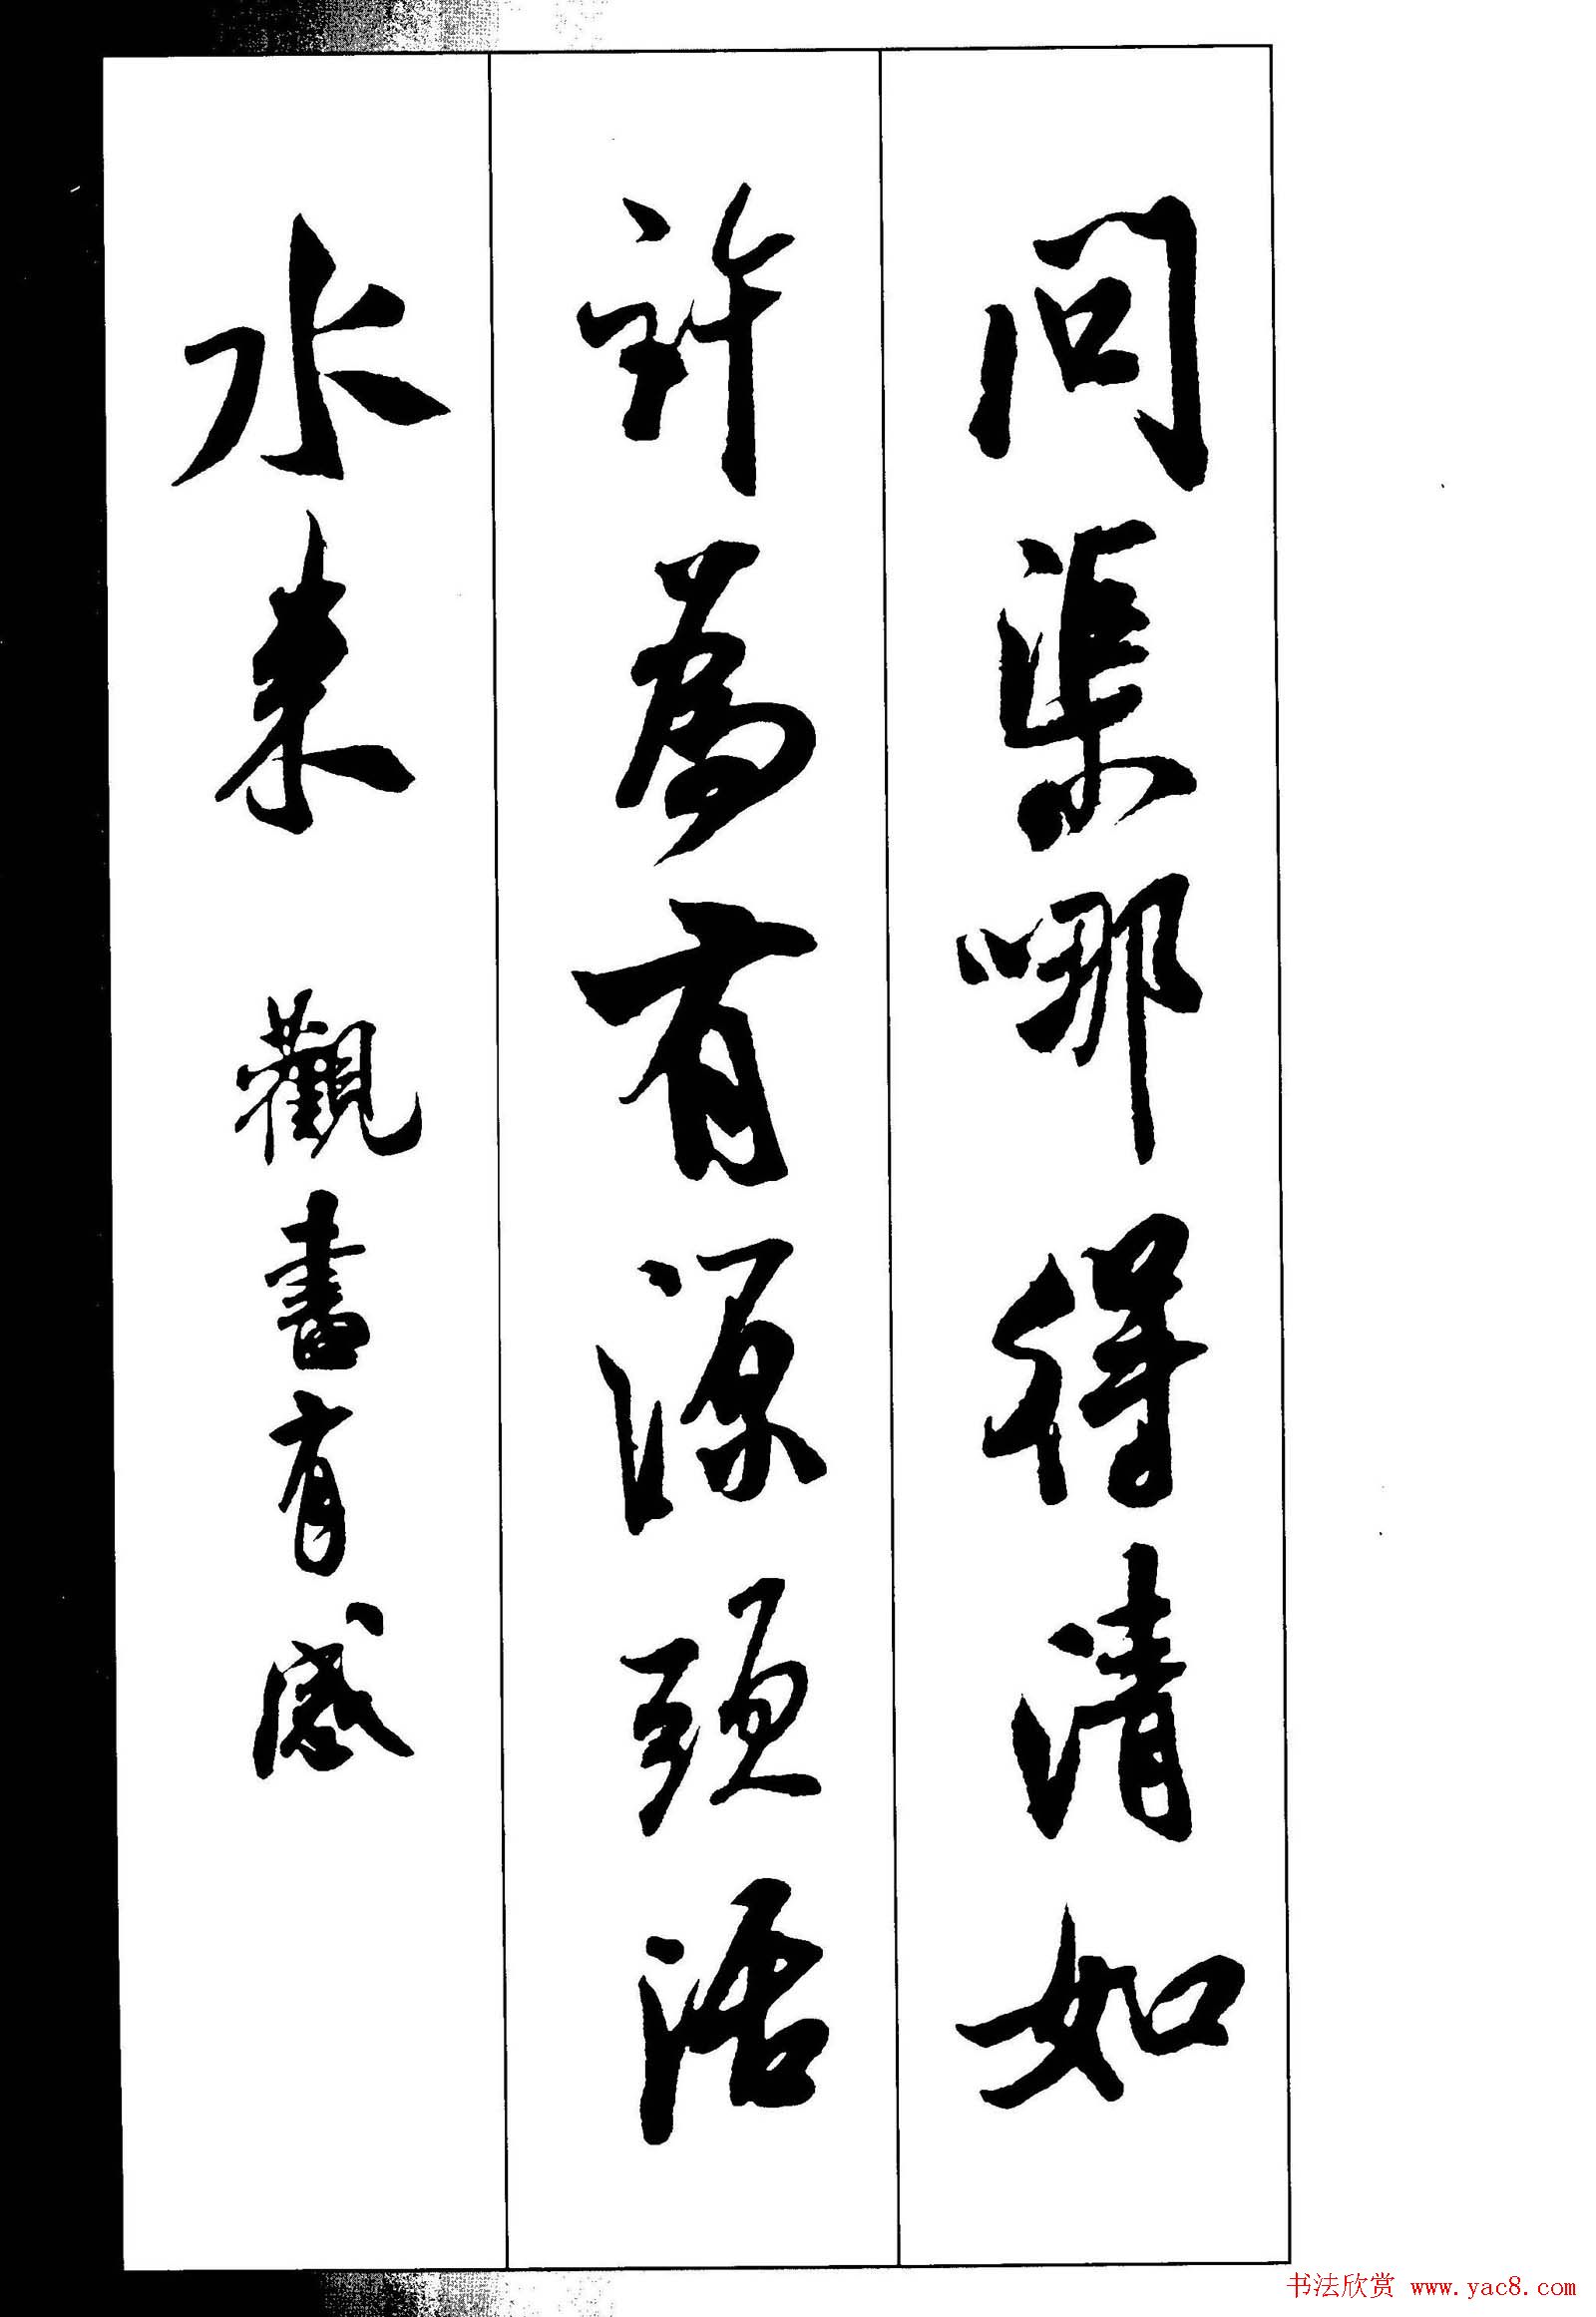 问渠哪得清如
許為有源頭活
水来 觀書有感
书法欣赏 www.yac8.com